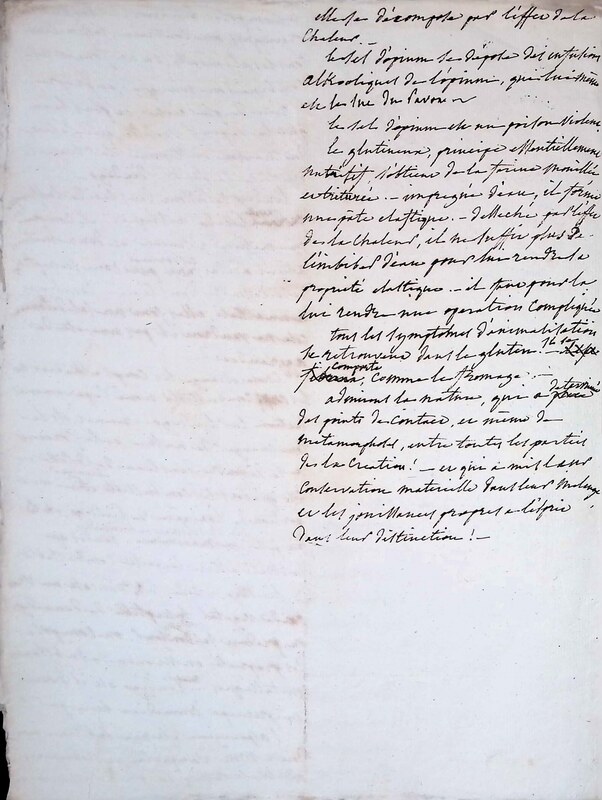 elle se décompose par l'effet de la
Chaleur. —
le sel d'opium se dépose des infusions
alkooliques de l'opium, qui lui même
est le suc du Pavot ~
le sel d'opium est un poison violent.
le glutineux, principe essentiellement
nutritif s'obtient de la farine mouillée
et triturée. — impregné d'eau, il forme
une pâte elastique. — desseché par l'effet
de la Chaleur, il ne suffit plus de
l'imbiber d'eau pour lui rendre sa
proprieté elastique. — il faut pour la
lui rendre une operation compliquée
tous les symptomes d'animalisation
se retrouvent dans le gluten! — il se
comporte, comme le fromage. —
admirons la nature, qui a determiné
des points de contact, et même de
métamorphose, entre toutes les parties
de la création! — et qui a mis leur
conservation materielle dans leur mélange
et les jouissances propres a l'esprit
dans leur distinction! —